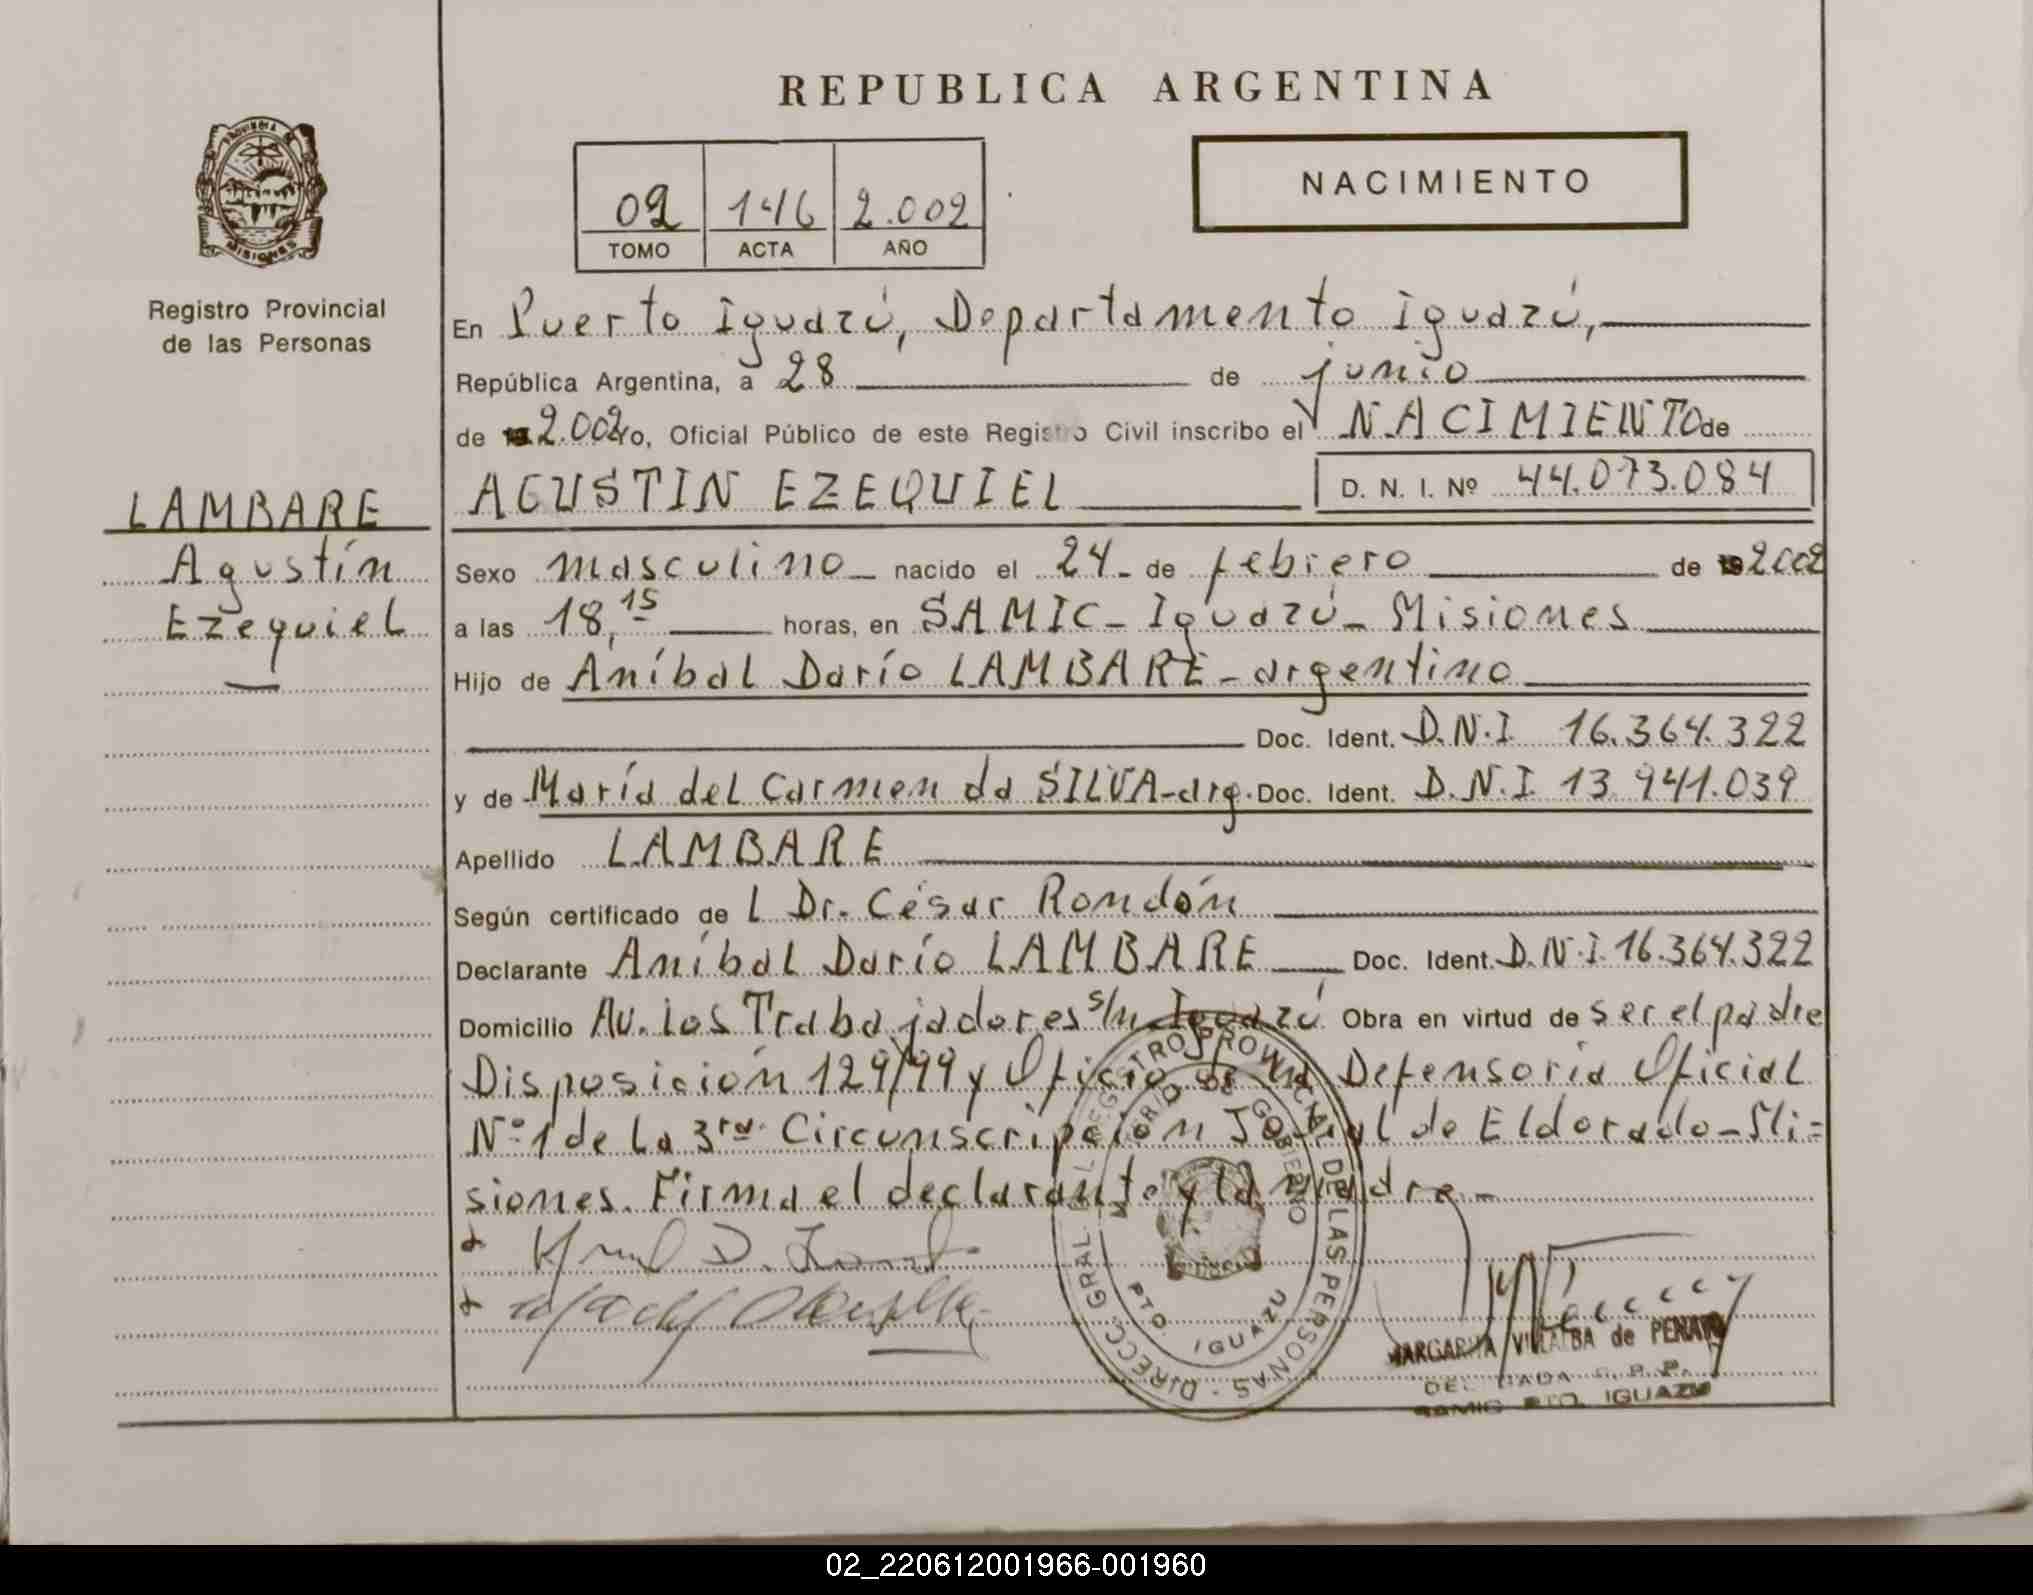 REPUBLICA ARGENTINA
NACIMIENTO
02 146 2.002
TOMO ACTA AÑO
PROVINCIA DE
MISIONES
Registro Provincial
de las Personas
En Puerto Iguazú, Departamento Iguazú,
República Argentina, a 28 de junio
de 2.002 yo, Oficial Público de este Registro Civil inscribo el NACIMIENTO de
AGUSTIN EZEQUIEL D. N. I. Nº 44.073.084
LAMBARE
Agustín
Ezequiel
Sexo masculino nacido el 24 de febrero de 2002
a las 18,15 horas, en SAMIC - Iguazú - Misiones
Hijo de Aníbal Darío LAMBARE - argentino
Doc. Ident. D.N.I 16.364.322
y de María del Carmen da SILVA - arg. Doc. Ident. D.N.I. 13.941.039
Apellido LAMBARE
Según certificado de l Dr. César Rondón
Declarante Aníbal Darío LAMBARE Doc. Ident. D.N.I. 16.364.322
Domicilio Av. Los Trabajadores s/n Iguazú Obra en virtud de ser el padre
Disposición 129/99 y Oficio de la Defensoría Oficial
Nº 1 de la 3ra. Circunscripción Judicial de Eldorado - Mi=
siones. Firma el declarante y la madre.-
DIRECC. GRAL. DEL REGISTRO PROVINCIAL DE LAS PERSONAS
DE GOBIERNO
PTO. IGUAZU
MARGARITA VILLALBA de PENAYO
DELEGADA R. P. P.
SAMIC PTO. IGUAZU
02_220612001966-001960